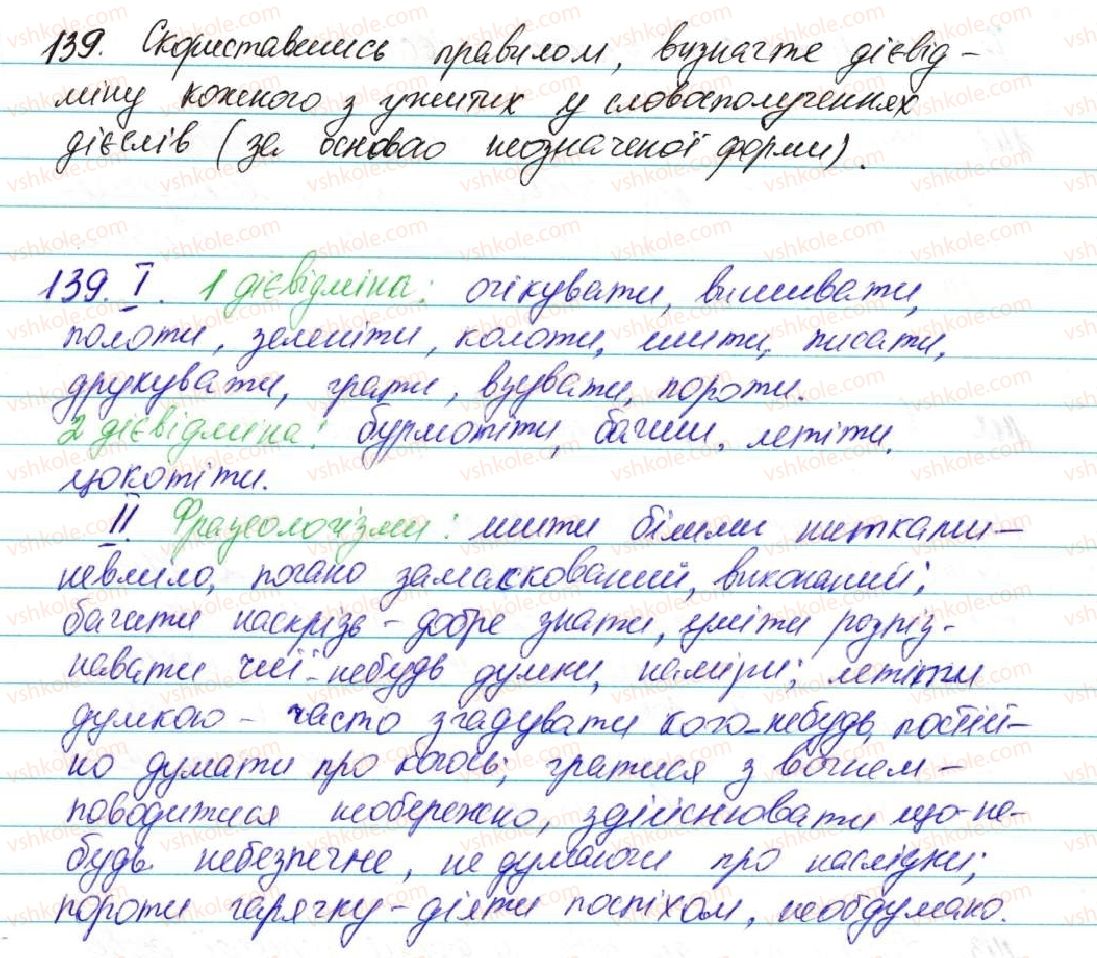 139. Скориставшись правилом, визначте дієвід-
міну кожного з ужитих у словосполученнях
дієслів (за основою неозначеної форми).
139. I. 1 дієвідміна: очікувати, вишивати,
полоти, зеленіти, колоти, шити, писати,
друкувати, грати, взувати, пороти.
2 дієвідміна: бурмотіти, бачити, летіти,
цокотіти.
II. Фразеологізми: шити білими нитками -
невміло, погано замаскований, виконаний;
бачити наскрізь - добре знати, уміти розпіз-
навати чиї-небудь думки, наміри; летіти
думкою - часто згадувати кого-небудь, постій-
но думати про когось; гратися з вогнем -
поводитися необережно, здійснювати що-не-
будь небезпечне, не думаючи про наслідки;
пороти гарячку - діяти поспіхом, необдумано.